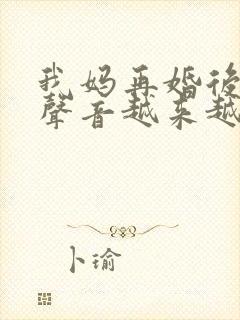 我妈再婚後
聲音越来越
卜瑜